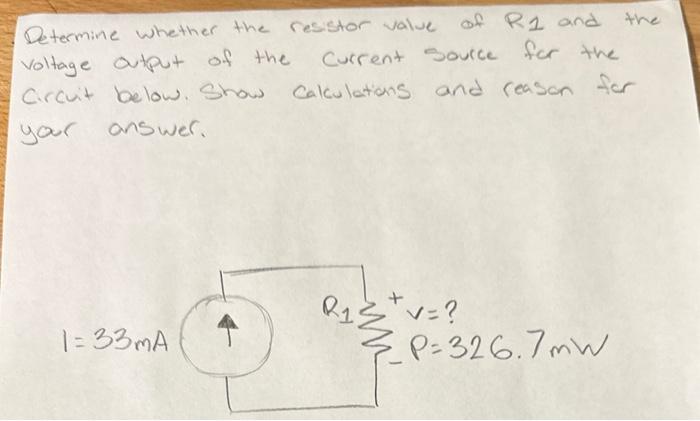 Determine whether the resistor value of R1 and the
voltage output of the current source for the
circuit below. Show calculations and reason for
your answer.
R1 + V=?
I=33mA
- P=326.7mW